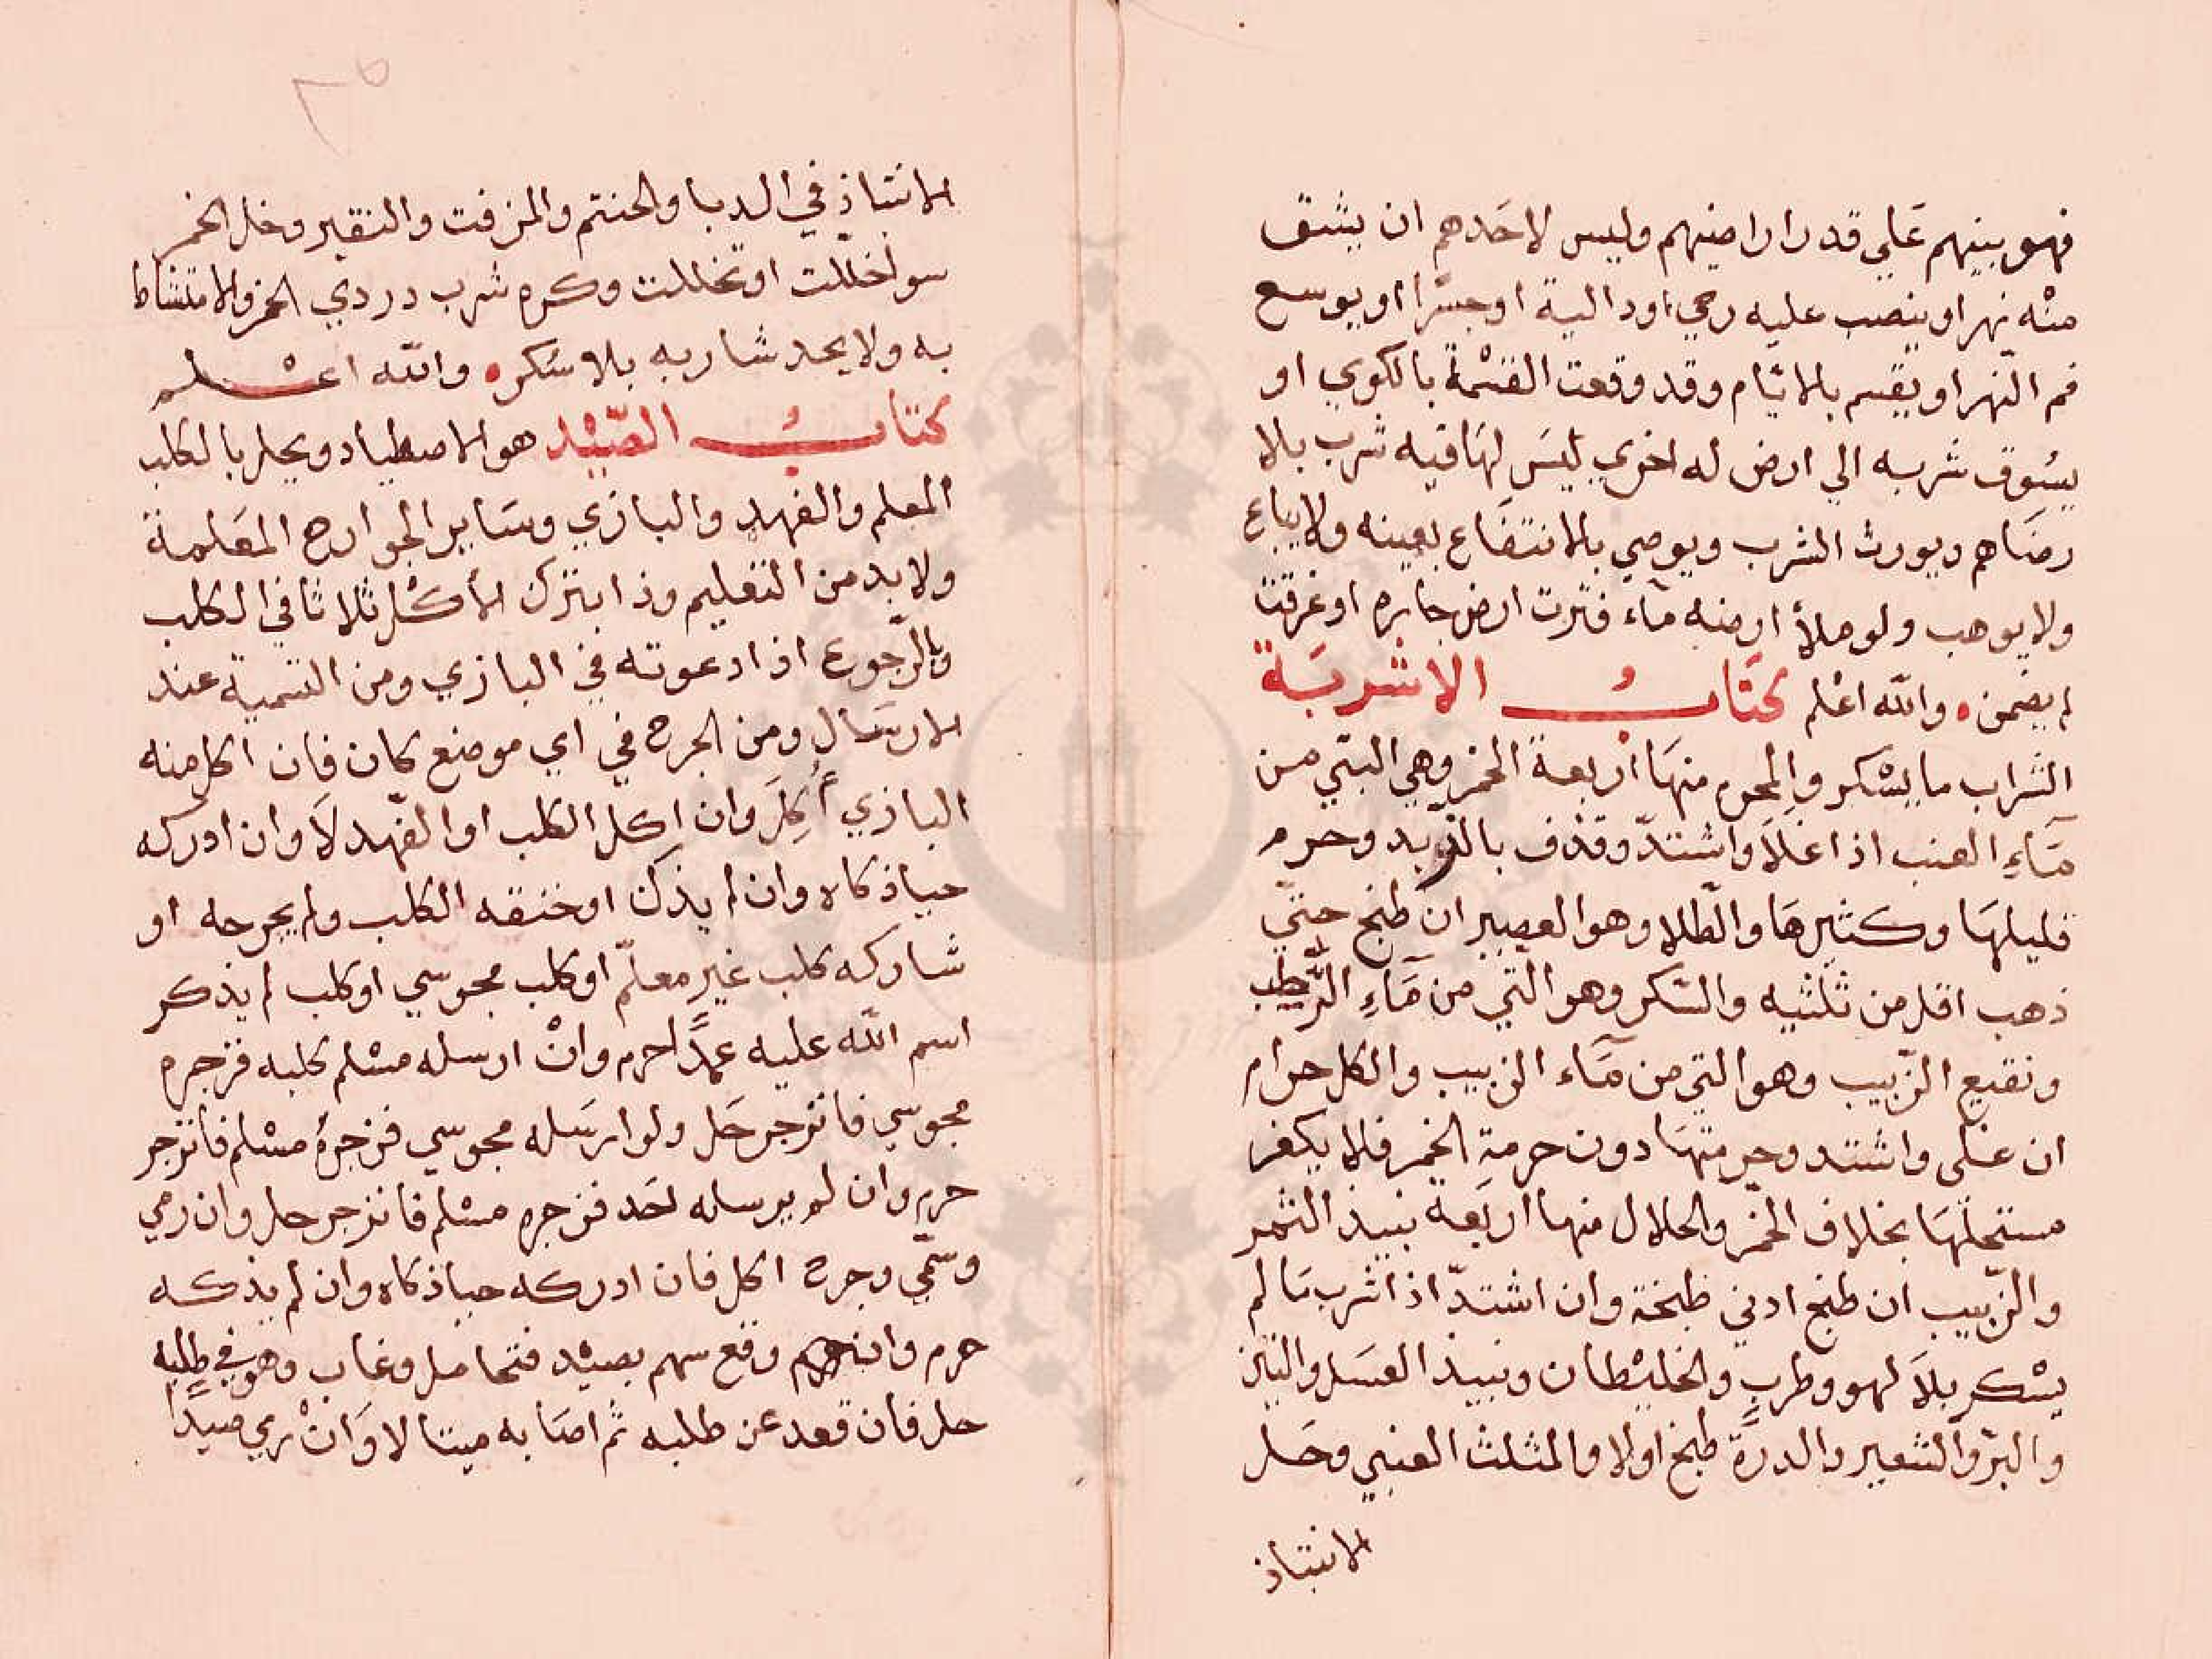 فهو بينهم علي قدر اراضيهم وليس لاحدهم ان يشق
منه نهرا او ينصب عليه رحي او دالية او جسرا او يوسع
فم النهر او يقسم بالايام وقد وقعت القسمة بالكوي او
يسوق شربه الي ارض له اخري ليس لها فيه شرب بلا
رضاهم ويورث الشرب ويوصي بالانتفاع بعينه ولا يباع
ولا يوهب ولو ملأ ارضه مآء فنزت ارض جاره او غرقت
لم يضمن والله اعلم كتاب الاشربة
الشراب ما يسكر والمحرم منها اربعة الخمر وهي التي من
مآء العنب اذا غلا واشتد وقذف بالزبد وحرم
قليلها وكثيرها والطلا وهو العصير ان طبخ حتي
ذهب اقل من ثلثيه والسكر وهو التي من مآء الرطب
ونقيع الزبيب وهو التي من مآء الزبيب والكل حرام
ان غلى واشتد وحرمتها دون حرمة الخمر فلا يكفر
مستحلها بخلاف الخمر والحلال منها اربعة نبيذ التمر
والزبيب ان طبخ ادني طبخة وان اشتد اذا شرب ما لم
يسكر بلا لهو وطرب والخليطان ونبيذ العسل والتين
والبر والشعير والدرة طبخ او لا والمثلث العنبي وحل
الانتباذ
الانتباذ في الدبا والحنتم والمزفت والنقير وخل الخمر
سوا خللت او تخللت وكره شرب دردي الخمر والامتشاط
به ولا يحد شاربه بلا سكر والله اعلم
كتاب الصيد هو الاصطياد ويحل بالكلب
المعلم والفهد والبازي وساير الجوارح المعلمة
ولا بد من التعليم وذا بترك الأكل ثلاثا في الكلب
وبالرجوع اذا دعوته في البازي ومن التسمية عند
الارسال ومن الجرح في اي موضع كان فان اكل منه
البازي أكل وان اكل الكلب او الفهد لا وان ادركه
حيا ذكاه وان لم يذك او خنقه الكلب ولم يجرحه او
شاركه كلب غير معلم او كلب مجوسي او كلب لم يذكر
اسم الله عليه عمدا حرم وان ارسله مسلم كلبه فزجره
مجوسي فانزجر حل ولو ارسله مجوسي فزجره مسلم فانزجر
حرم وان لم يرسله احد فزجره مسلم فانزجر حل وان رمي
وسمي وجرح اكل فان ادركه حيا ذكاه وان لم يذكه
حرم وان وقع سهم بصيد فتحامل وغاب وهو في طلبه
حل فان قعد عن طلبه ثم اصابه ميتا لا وان رمي صيدا